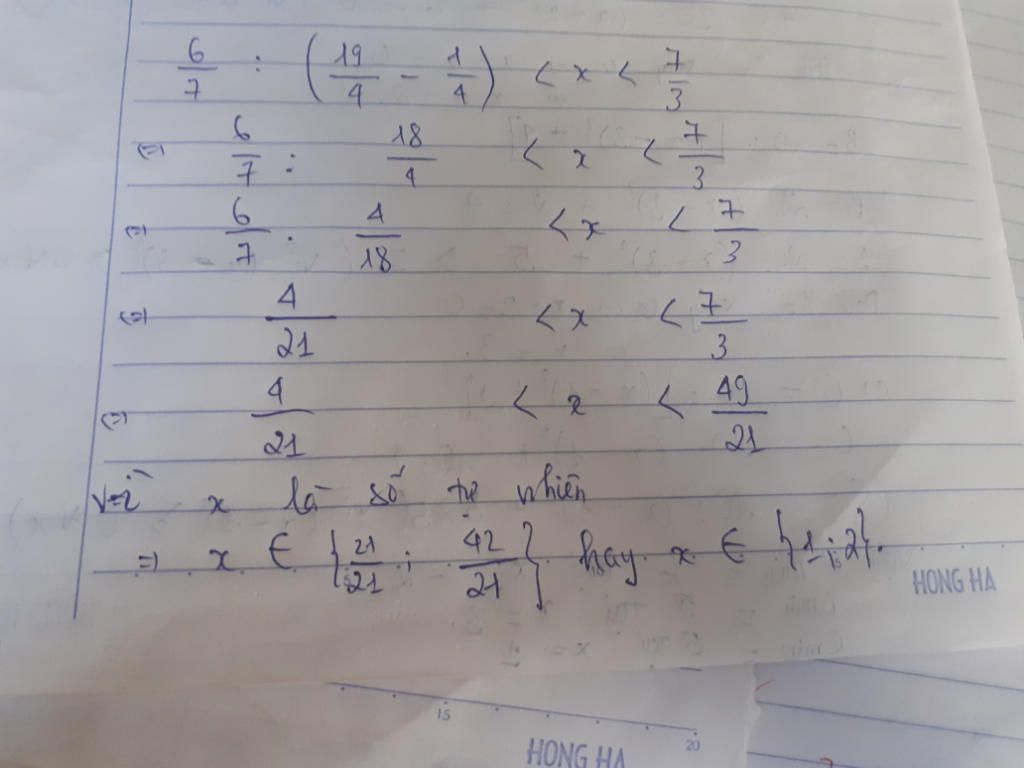 6/7 : (19/4 - 1/4) < x < 7/3
(=) 6/7 : 18/4 < x < 7/3
(=) 6/7 . 4/18 < x < 7/3
(=) 4/21 < x < 7/3
(=) 4/21 < x < 49/21
Vì x là số tự nhiên
=) x ∈ {21/21 ; 42/21} hay x ∈ {1; 2}.
HONG HA
15 20
HONG HA